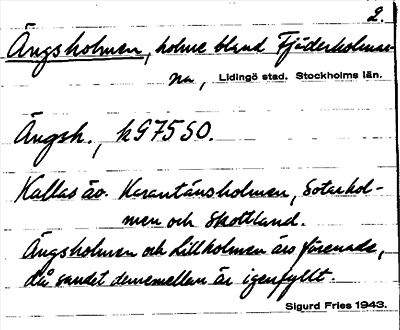 2.
Ängsholmen, holme bland Fjäderholmar-
na, Lidingö stad. Stockholms län.
Ängsh., k975SO.
Kallas äv. Karantänsholmen, Sotarhol-
men och Skottland.
Ängsholmen och Lillholmen äro förenade,
då sundet dememellan är igenfyllt.
Sigurd Fries 1943.